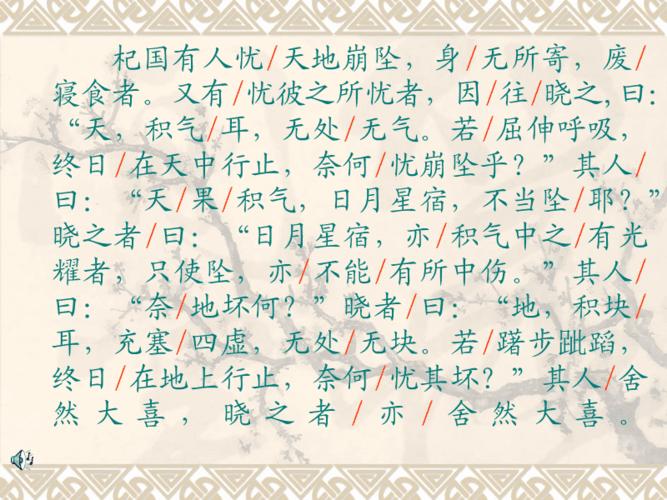 杞国有人忧/天地崩坠，身/无所寄，废/
寝食者。又有/忧彼之所忧者，因/往/晓之,曰：
“天，积气/耳，无处/无气。若/屈伸呼吸，
终日/在天中行止，奈何/忧崩坠乎？”其人/
曰：“天/果/积气，日月星宿，不当坠/耶？”
晓之者/曰：“日月星宿，亦/积气中之/有光
耀者，只使坠，亦/不能/有所中伤。”其人/
曰：“奈/地坏何？”晓者/曰：“地，积块/
耳，充塞/四虚，无处/无块。若/躇步跐蹈，
终日/在地上行止，奈何/忧其坏？”其人/舍
然大喜，晓之者/亦/舍然大喜。